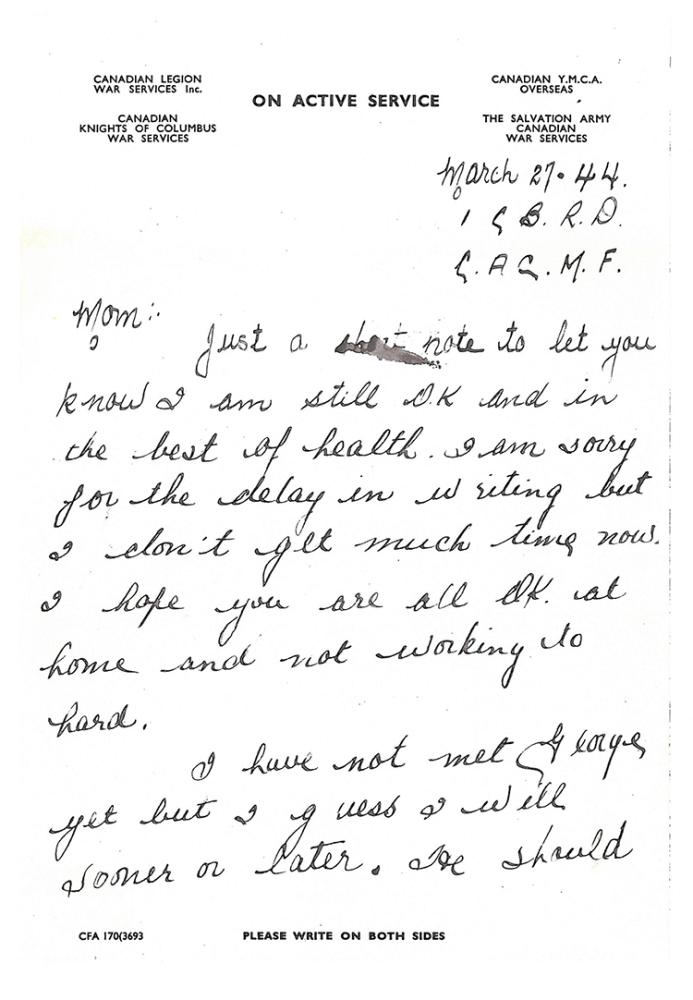 CANADIAN LEGION
WAR SERVICES Inc.
CANADIAN
KNIGHTS OF COLUMBUS
WAR SERVICES
ON ACTIVE SERVICE
CANADIAN Y.M.C.A.
OVERSEAS
THE SALVATION ARMY
CANADIAN
WAR SERVICES
March 27. 44.
1 C B. R. D.
C. A C. M. F.
Mom:
Just a short note to let you
know I am still OK and in
the best of health. I am sorry
for the delay in writing but
I don't get much time now.
I hope you are all OK. at
home and not working to
hard.
I have not met George
yet but I guess I will
sooner or later. He should
CFA 170(3693
PLEASE WRITE ON BOTH SIDES